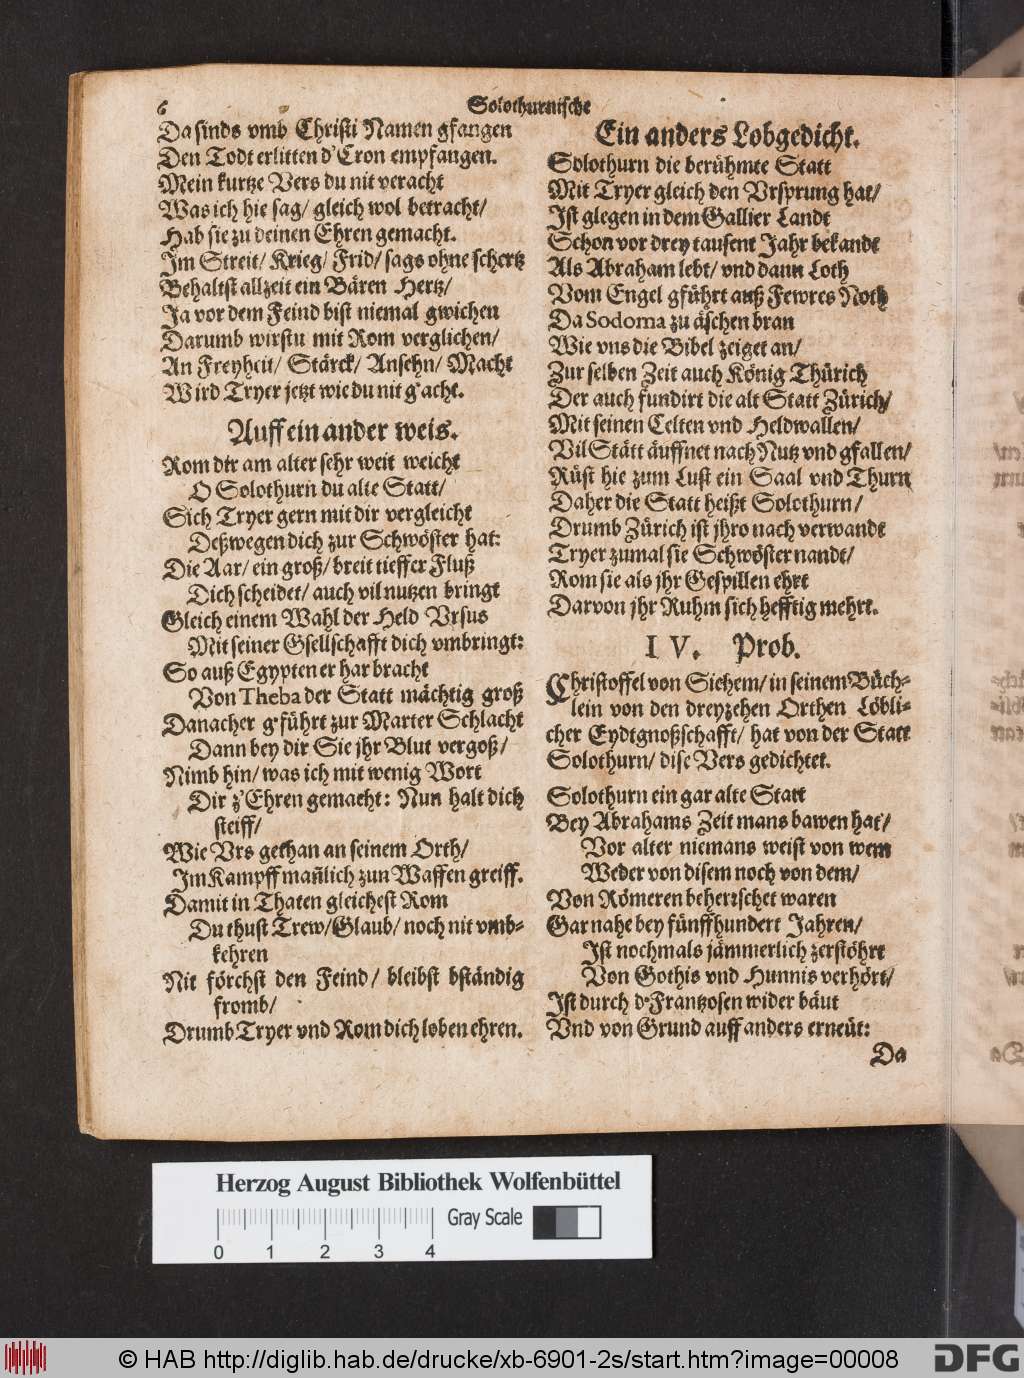 6
Solothurnische
Da sinds vmb Christi Namen gfangen
Den Todt erlitten d'Cron empfangen.
Mein kurtze Vers du nit veracht
Was ich hie sag/ gleich wol betracht/
Hab sie zu deinen Ehren gemacht.
Im Streit/ Krieg/ Frid/ sags ohne schertz
Behaltst allzeit ein Bären Hertz/
Ja vor dem Feind bist niemal gwichen
Darumb wirstu mit Rom verglichen/
An Freyheit/ Stärck/ Ansehn/ Macht
Wird Tryer jetzt wie du nit g'acht.
Auff ein ander weis.
Rom dir am alter sehr weit weicht
O Solothurn du alte Statt/
Sich Tryer gern mit dir vergleicht
Deßwegen dich zur Schwöster hat:
Die Aar/ ein groß/ breit tieffer Fluß
Dich scheidet/ auch vil nutzen bringt
Gleich einem Wahl der Held Vrsus
Mit seiner Gsellschafft dich vmbringt:
So auß Egypten er har bracht
Von Theba der Statt mächtig groß
Danacher g'führt zur Marter Schlacht
Dann bey dir Sie jhr Blut vergoß/
Nimb hin/ was ich mit wenig Wort
Dir z'Ehren gemacht: Nun halt dich
steiff/
Wie Vrs gethan an seinem Orth/
Im Kampff mañlich zun Waffen greiff.
Damit in Thaten gleichest Rom
Du thust Trew/Glaub/ noch nit vmb-
kehren
Nit förchst den Feind/ bleibst bständig
fromb/
Drumb Tryer vnd Rom dich loben ehren.
Ein anders Lobgedicht.
Solothurn die berühmte Statt
Mit Tryer gleich den Vrsprung hat/
Ist glegen in dem Gallier Landt
Schon vor drey tausent Jahr bekandt
Als Abraham lebt/ vnd dann Loth
Vom Engel gführt auß Fewres Noth
Da Sodoma zu äschen bran
Wie vns die Bibel zeiget an/
Zur selben Zeit auch König Thürich
Der auch fundirt die alt Statt Zürich/
Mit seinen Celten vnd Heldwallen/
Vil Stätt äuffnet nach Nutz vnd gfallen/
Rüst hie zum Lust ein Saal vnd Thurn
Daher die Statt heißt Solothurn/
Drumb Zürich ist jhro nach verwandt
Tryer zumal sie Schwöster nandt/
Rom sie als jhr Gespillen ehrt
Darvon jhr Ruhm sich hefftig mehrt.
IV. Prob.
Christoffel von Sichem/ in seinem Büch-
lein von den dreyzehen Orthen Löbli-
cher Eydtgnoßschafft/ hat von der Statt
Solothurn/ dise Vers gedichtet.
Solothurn ein gar alte Statt
Bey Abrahams Zeit mans bawen hat/
Vor alter niemans weist von wem
Weder von disem noch von dem/
Von Römeren beherrschet waren
Gar nahe bey fünffhundert Jahren/
Ist nochmals jämmerlich zerstöhrt
Von Gothis vnd Hunnis verhört/
Ist durch d'Frantzosen wider bäut
Vnd von Grund auff anders erneüt:
Da
Herzog August Bibliothek Wolfenbüttel
Gray Scale
0 1 2 3 4
© HAB http://diglib.hab.de/drucke/xb-6901-2s/start.htm?image=00008
DFG